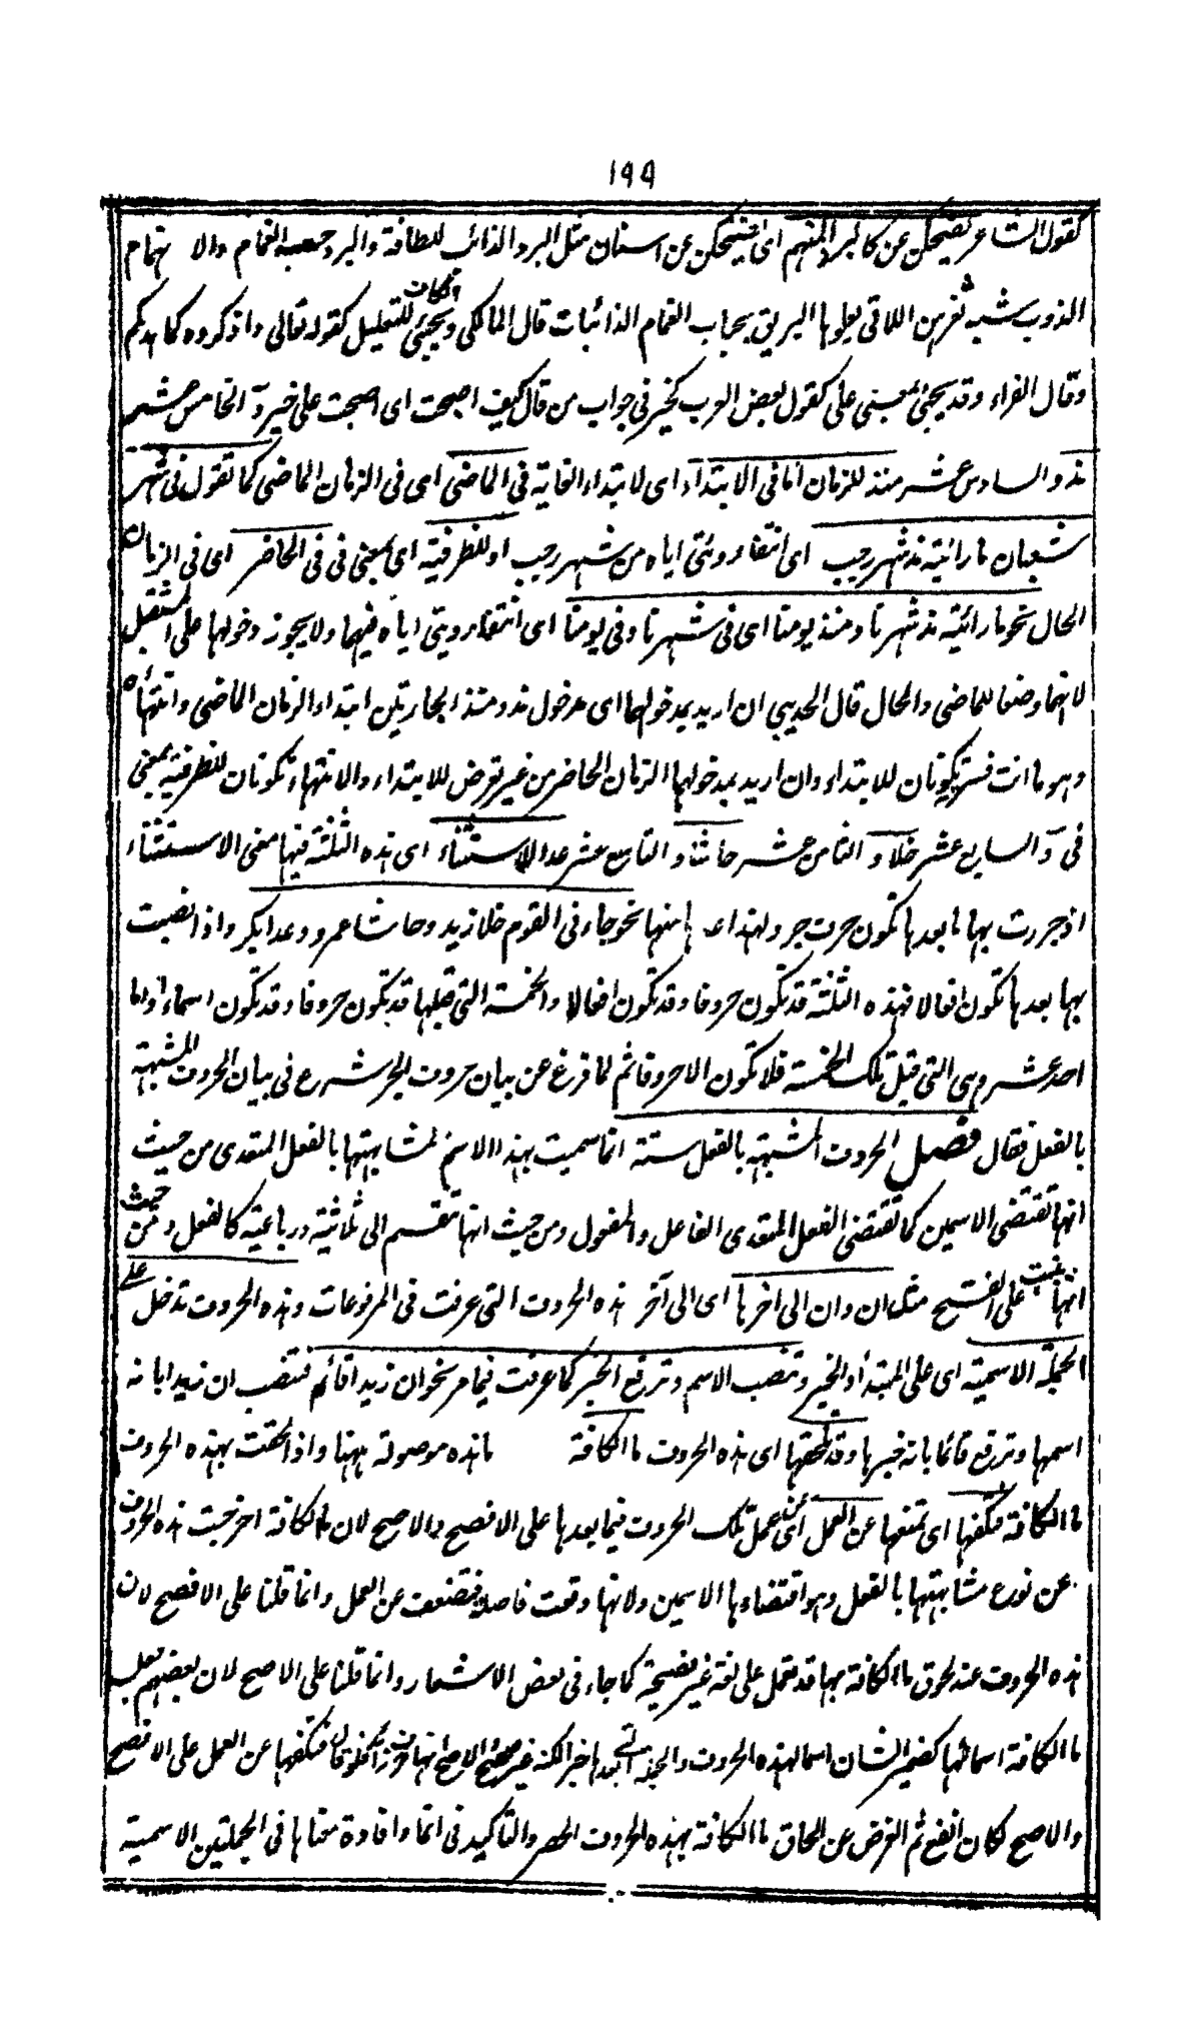 ١٩٩
كقول الشاعر يضحكن عن كالبرد المنهم اى يضحكن عن اسنان مثل البرد الذائب للطافة والبرد حب الغمام والانهمام
الذوب شبه ثغرهن اللاتى يعلوها البريق بحباب الغمام الذائبات قال المالكى ويجئ الكاف للتعليل كقوله تعالى واذكروه كما هدٰكم
وقال الفراء وقد يجئ بمعنى على كقول بعض العرب كخير فى جواب من قال كيف اصبحت اى اصبحت على خير و الخامس عشر
مذ والسادس عشر منذ للزمان اما فى الابتداء اى لابتداء الغاية فى الماضى اى فى الزمان الماضى كما تقول فى شهر
شعبان ما رائيته مذ شهر رجب اى انتفاء رويتى اياه من شهر رجب او للظرفية اى بمعنى فى فى الحاضر اى فى الزمان
الحال نحو ما رائيته مذ شهرنا ومنذ يومنا اى فى شهرنا وفى يومنا اى انتفاء رويتى اياه فيهما ولا يجوز دخولها على المستقبل
لانهما وضعا للماضى والحال قال الحديبى ان اريد بمدخولهما اى مدخول مذ ومنذ الجارتين ابتداء الزمان الماضى وانتهاءه
وهو ما انت فيه تكونان للابتداء وان اريد بمدخولهما الزمان الحاضر من غير تعرض للابتداء والانتهاء تكونان للظرفية بمعنى
فى و السابع عشر خلا و الثامن عشر حاشا و التاسع عشر عدا للاستثناء اى هذه الثلثة فيها معنى الاستثناء
اذ جررت بها ما بعدها تكون حرف جر ولهذا عد منها نحو جاءنى القوم خلا زيد وحاشا عمرو وعدا بكر واذا نصبت
بها بعدها تكون افعالا فهذه الثلثة قد تكون حروفا وقد تكون افعالا والخمسة التى قبلها قد تكون حروفا وقد تكون اسماء واما
احد عشر وهى التى قبل تلك الخمسة فلا تكون الا حروفا ثم لما فرغ عن بيان حروف الجر شرع فى بيان الحروف المشبهة
بالفعل فقال فصل الحروف المشبهة بالفعل ستة انما سميت بهذا الاسم لمشابهتها بالفعل المتعدى من حيث
انها تقتضى الاسمين كما تقتضى الفعل المتعدى الفاعل والمفعول ومن حيث انها تنقسم الى ثلاثية ورباعية كالفعل ومن حيث
انها بنيت على الفتح مثل ان وان الى اخرها اى الى آخر هذه الحروف التى عرفت فى المرفوعات وهذه الحروف تدخل على
الجملة الاسمية اى على المبتدأ والخبر وتنصب الاسم وترفع الخبر كما عرفت فيما مر نحو ان زيدا قائم فتنصب ان زيدا بانه
اسمها وترفع قائما بانه خبرها وقد تلحقها اى هذه الحروف ما الكافة ما هذه موصولة بهنا واذا لحقت بهذه الحروف
ما الكافة فتكفها اى تمنعها عن العمل اى عن عمل تلك الحروف فيما بعدها على الافصح والاصح لان ما الكافة اخرجت هذه الحروف
عن نوع مشابهتها بالفعل وهو اقتضاءها الاسمين ولانها وقعت فاصلة فتضعف عن العمل وانما قلنا على الافصح لان
هذه الحروف عند لحوق ما الكافة بها قد تعمل على لغة غير فصيحة كما جاء فى بعض الاشعار وانما قلنا على الاصح لان بعضهم يجعل
ما الكافة اسما لها كضمير الشان اسما لهذه الحروف والجملة التى بعدها خبرا لكنه غير صحيح الاصح انها حرف فتكفها عن العمل على الافصح
والاصح لكان انفع ثم الغرض عن الحاق ما الكافة بهذه الحروف الحصر والتاكيد فى انما وافادة معناها فى الجملتين الاسمية